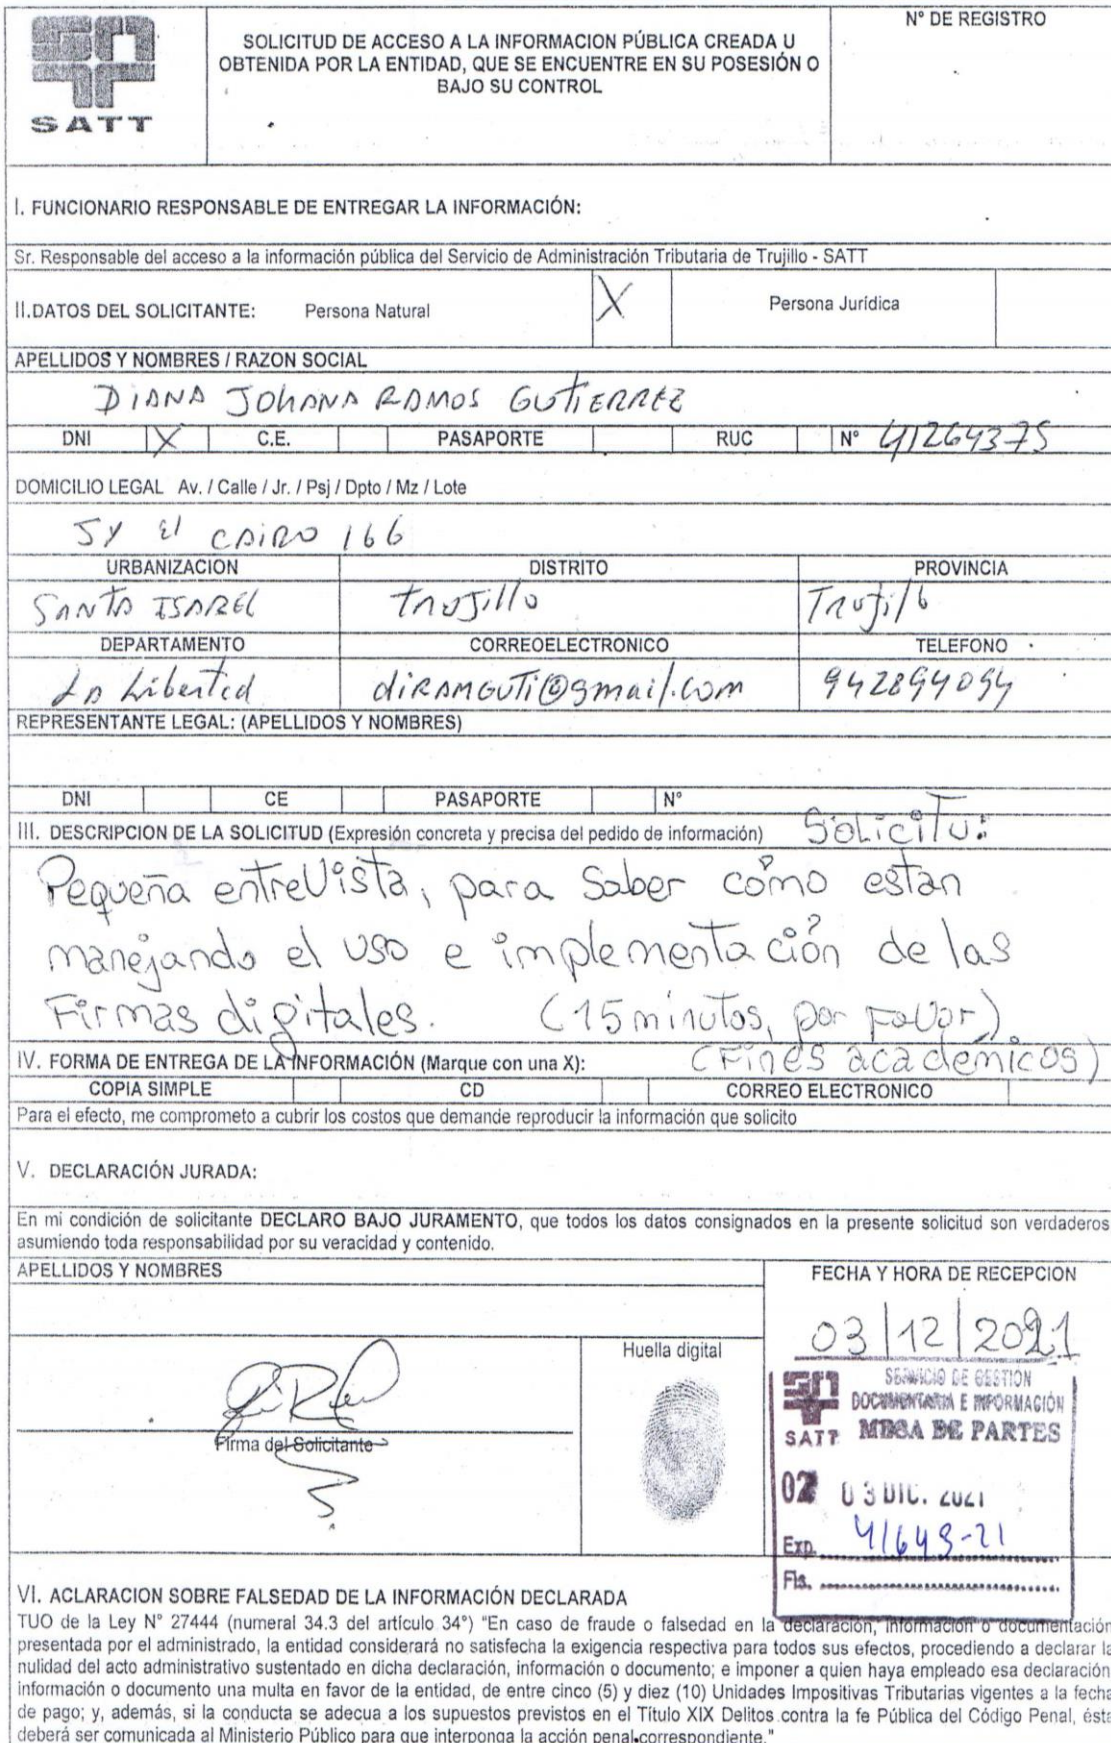 SATT
SOLICITUD DE ACCESO A LA INFORMACION PÚBLICA CREADA U
OBTENIDA POR LA ENTIDAD, QUE SE ENCUENTRE EN SU POSESIÓN O
BAJO SU CONTROL
N° DE REGISTRO
I. FUNCIONARIO RESPONSABLE DE ENTREGAR LA INFORMACIÓN:
Sr. Responsable del acceso a la información pública del Servicio de Administración Tributaria de Trujillo - SATT
II.DATOS DEL SOLICITANTE: Persona Natural X Persona Jurídica
APELLIDOS Y NOMBRES / RAZON SOCIAL
DIANA JOHANA RAMOS GUTIERREZ
DNI X C.E. PASAPORTE RUC N° 41264375
DOMICILIO LEGAL Av. / Calle / Jr. / Psj / Dpto / Mz / Lote
El CAIRO 166
URBANIZACION DISTRITO PROVINCIA
SANTA ISABEL Trujillo Trujillo
DEPARTAMENTO CORREOELECTRONICO TELEFONO
La Libertad diRAMGUTI@gmail.com 942894094
REPRESENTANTE LEGAL: (APELLIDOS Y NOMBRES)
DNI CE PASAPORTE N°
III. DESCRIPCION DE LA SOLICITUD (Expresión concreta y precisa del pedido de información) Solicitu:
Pequeña entrevista, para saber cómo están
manejando el uso e implementación de las
Firmas digitales. (15 minutos, por favor)
IV. FORMA DE ENTREGA DE LA INFORMACIÓN (Marque con una X): (Fines académicos)
COPIA SIMPLE CD CORREO ELECTRONICO
Para el efecto, me comprometo a cubrir los costos que demande reproducir la información que solicito
V. DECLARACIÓN JURADA:
En mi condición de solicitante DECLARO BAJO JURAMENTO, que todos los datos consignados en la presente solicitud son verderos
asumiendo toda responsabilidad por su veracidad y contenido.
APELLIDOS Y NOMBRES
FECHA Y HORA DE RECEPCION
03/12/2021
Huella digital
Firma del Solicitante
SERVICIO DE GESTION
DOCUMENTARIA E INFORMACIÓN
SATT MESA DE PARTES
02 03 DIC. 2021
Exp. 41649-21
Fls.
VI. ACLARACION SOBRE FALSEDAD DE LA INFORMACIÓN DECLARADA
TUO de la Ley N° 27444 (numeral 34.3 del artículo 34°) "En caso de fraude o falsedad en la declaración, información o documentación
presentada por el administrado, la entidad considerará no satisfecha la exigencia respectiva para todos sus efectos, procediendo a declarar la
nulidad del acto administrativo sustentado en dicha declaración, información o documento; e imponer a quien haya empleado esa declaración
información o documento una multa en favor de la entidad, de entre cinco (5) y diez (10) Unidades Impositivas Tributarias vigentes a la fecha
de pago; y, además, si la conducta se adecua a los supuestos previstos en el Título XIX Delitos contra la fe Pública del Código Penal, ésta
deberá ser comunicada al Ministerio Público para que interponga la acción penal correspondiente."